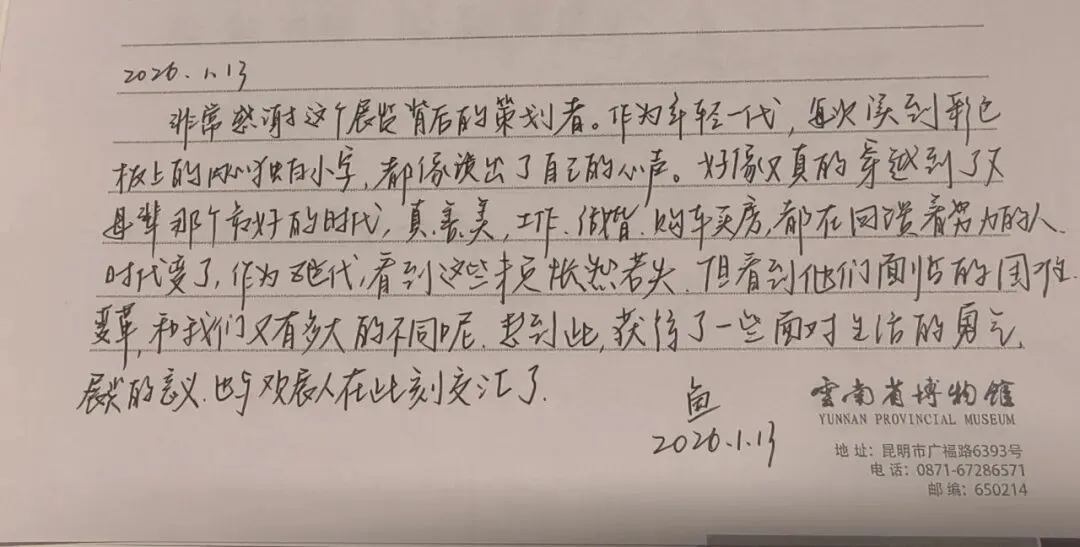 2026.1.13
非常感谢这个展览背后的策划者。作为年轻一代，每次读到彩色
板上的内心独白小字，都像读出了自己的心声。好像又真的穿越到了父
母辈那个最好的时代，真、善、美，工作、结婚、购车买房，都在回馈着努力的人.
时代变了，作为 代，看到这些未免怅然若失.但看到他们面临的困难.
变革，和我们又有多大的不同呢.想到此，获得了一些面对生活的勇气.
展览的意义.也与观展人在此刻交汇了.
鱼
2026.1.13
雲南省博物館
YUNNAN PROVINCIAL MUSEUM
地 址：昆明市广福路6393号
电 话：0871-67286571
邮 编：650214